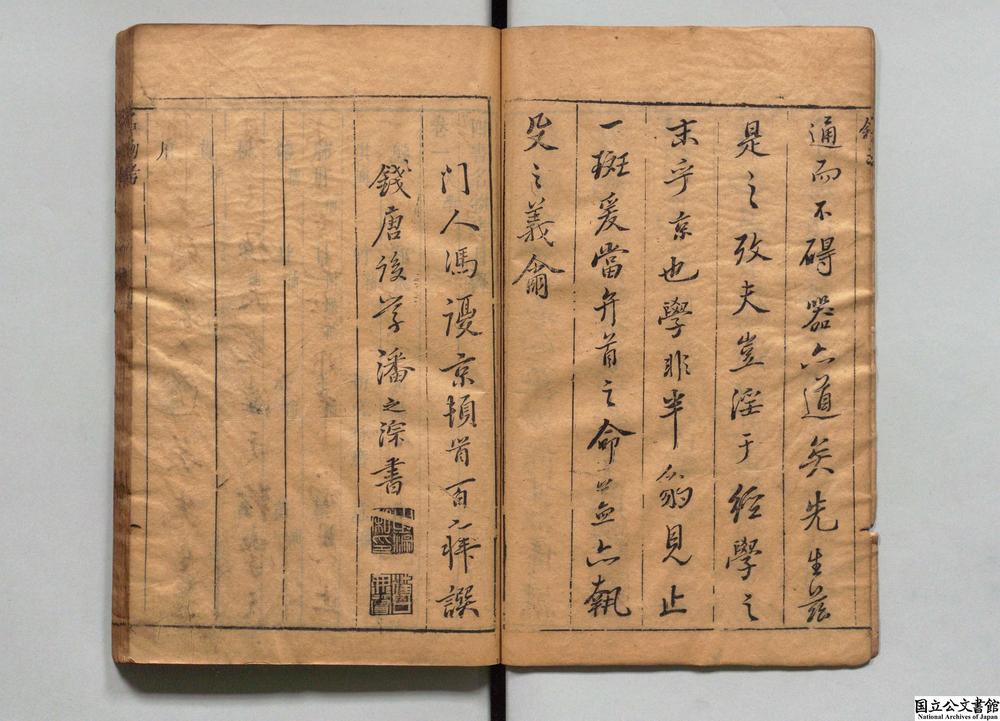 通而不碍器亦道矣先生茲
是之攷夫豈淫于經學之
末乎京也學非半豹見止
一斑爰當弁首之命亦執
殳之義爾
門人馮諼京頓首百拜譔
錢唐後學潘之淙書
国立公文書館
National Archives of Japan